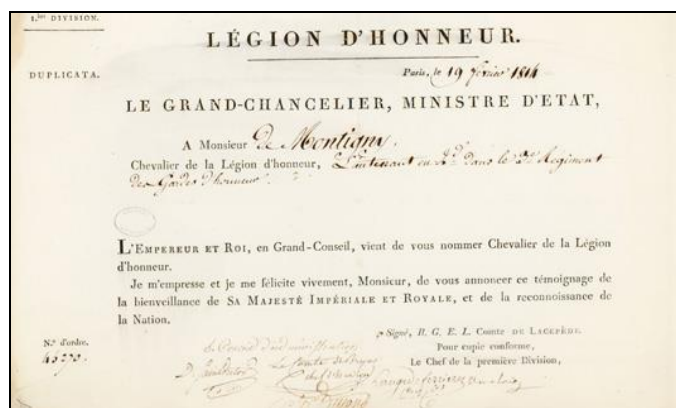 1.re DIVISION.
LÉGION D'HONNEUR.
DUPLICATA.
Paris, le 19 février 1814
LE GRAND-CHANCELIER, MINISTRE D'ETAT,
A Monsieur De Montigny.
Chevalier de la Légion d'honneur, Lieutenant en 2.d dans le Régiment
des Gardes d'honneur.
L'EMPEREUR ET ROI, en Grand-Conseil, vient de vous nommer Chevalier de la Légion
d'honneur.
Je m'empresse et je me félicite vivement, Monsieur, de vous annoncer ce témoignage de
la bienveillance de SA MAJESTÉ IMPÉRIALE ET ROYALE, et de la reconnoissance de
la Nation.
N.º d'ordre.
Signé, B. G. E. L. Comte DE LACEPÈDE.
Pour copie conforme,
Le Chef de la première Division,